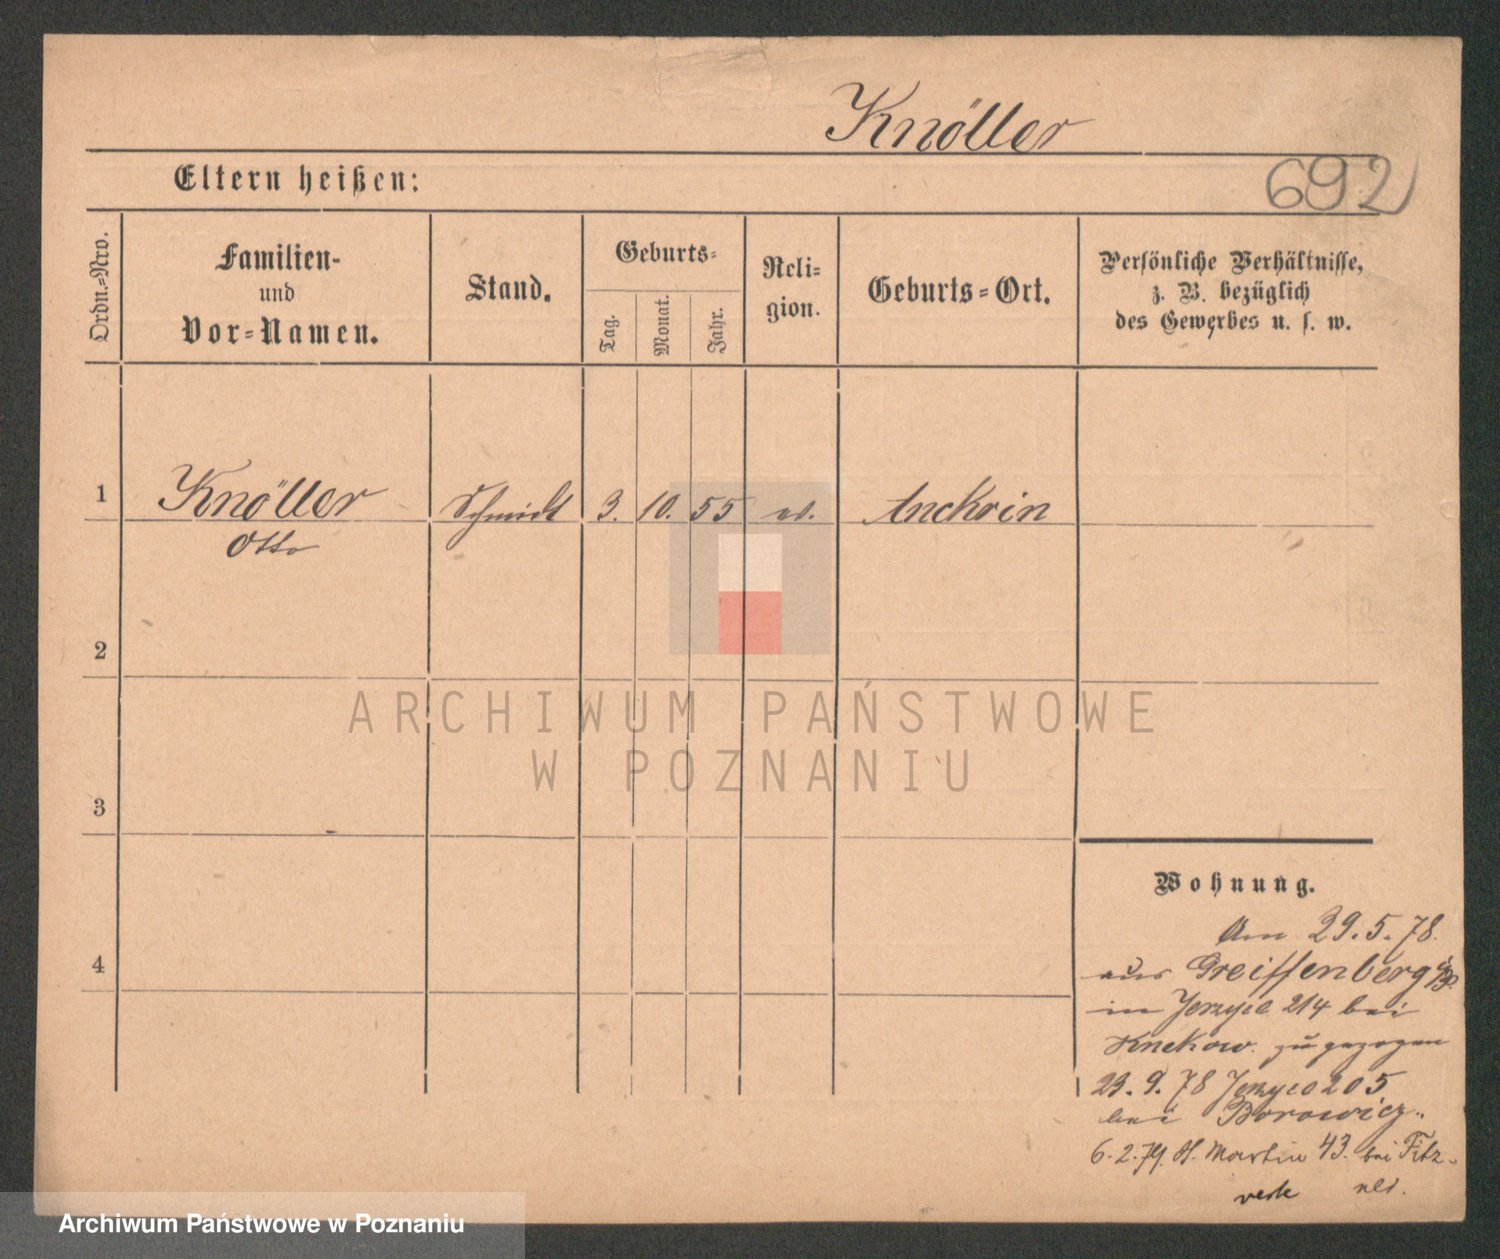 Knöller
Eltern heißen:
692
Ordn.-Nro.
Familien-
und
Vor-Namen.
Stand.
Geburts-
Tag.
Monat.
Jahr.
Reli-
gion.
Geburts-Ort.
Persönliche Verhältnisse,
z. B. bezüglich
des Gewerbes u. s. w.
1 Knöller Schmidt 3. 10. 55 ev. Anckrin
Otto
2
ARCHIWUM PAŃSTWOWE
W POZNANIU
3
Wohnung.
Am 29.5.78.
4
aus Greiffenberg i/P.
in Jerzyce 214 bei
zugezogen
23.9.78 Jerzyce 205
bei Borowicz.
6.2.79. St. Martin 43. bei Fitz-
ner.
Archiwum Państwowe w Poznaniu